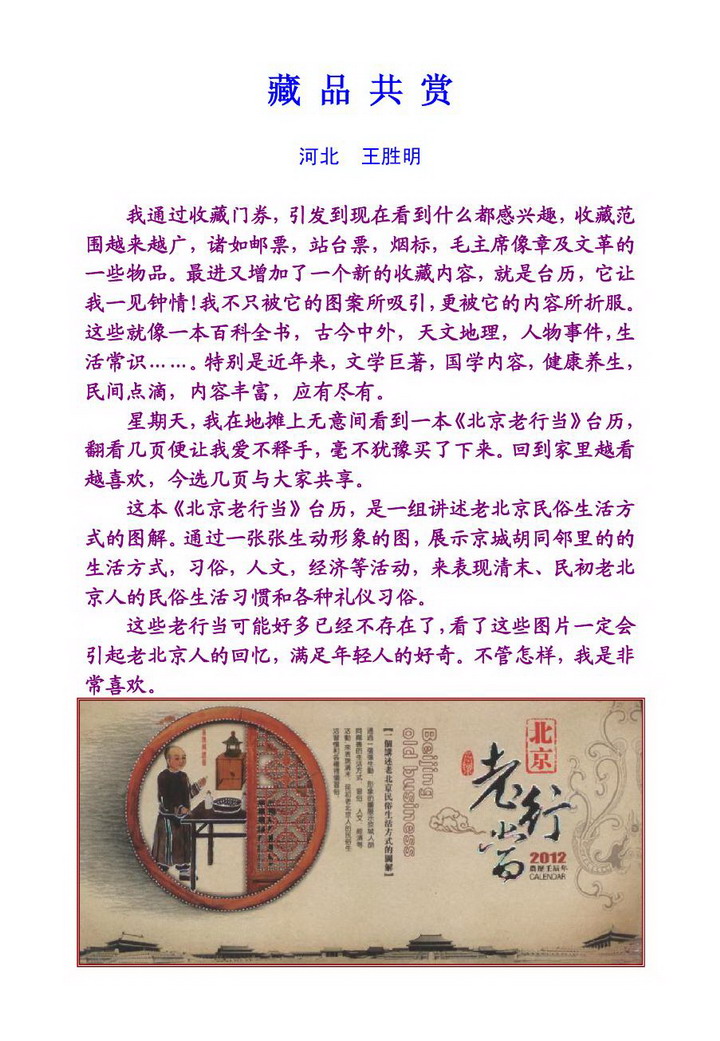 藏品共赏
河北 王胜明
我通过收藏门券，引发到现在看到什么都感兴趣，收藏范
围越来越广，诸如邮票，站台票，烟标，毛主席像章及文革的
一些物品。最进又增加了一个新的收藏内容，就是台历，它让
我一见钟情！我不只被它的图案所吸引，更被它的内容所折服。
这些就像一本百科全书，古今中外，天文地理，人物事件，生
活常识……。特别是近年来，文学巨著，国学内容，健康养生，
民间点滴，内容丰富，应有尽有。
星期天，我在地摊上无意间看到一本《北京老行当》台历，
翻看几页便让我爱不释手，毫不犹豫买了下来。回到家里越看
越喜欢，今选几页与大家共享。
这本《北京老行当》台历，是一组讲述老北京民俗生活方
式的图解。通过一张张生动形象的图，展示京城胡同邻里的的
生活方式，习俗，人文，经济等活动，来表现清末、民初老北
京人的民俗生活习惯和各种礼仪习俗。
这些老行当可能好多已经不存在了，看了这些图片一定会
引起老北京人的回忆，满足年轻人的好奇。不管怎样，我是非
常喜欢。
北京
老行當
2012
農曆壬辰年
CALENDAR
Beijing
old business
【一個講述老北京民俗生活方式的圖解】